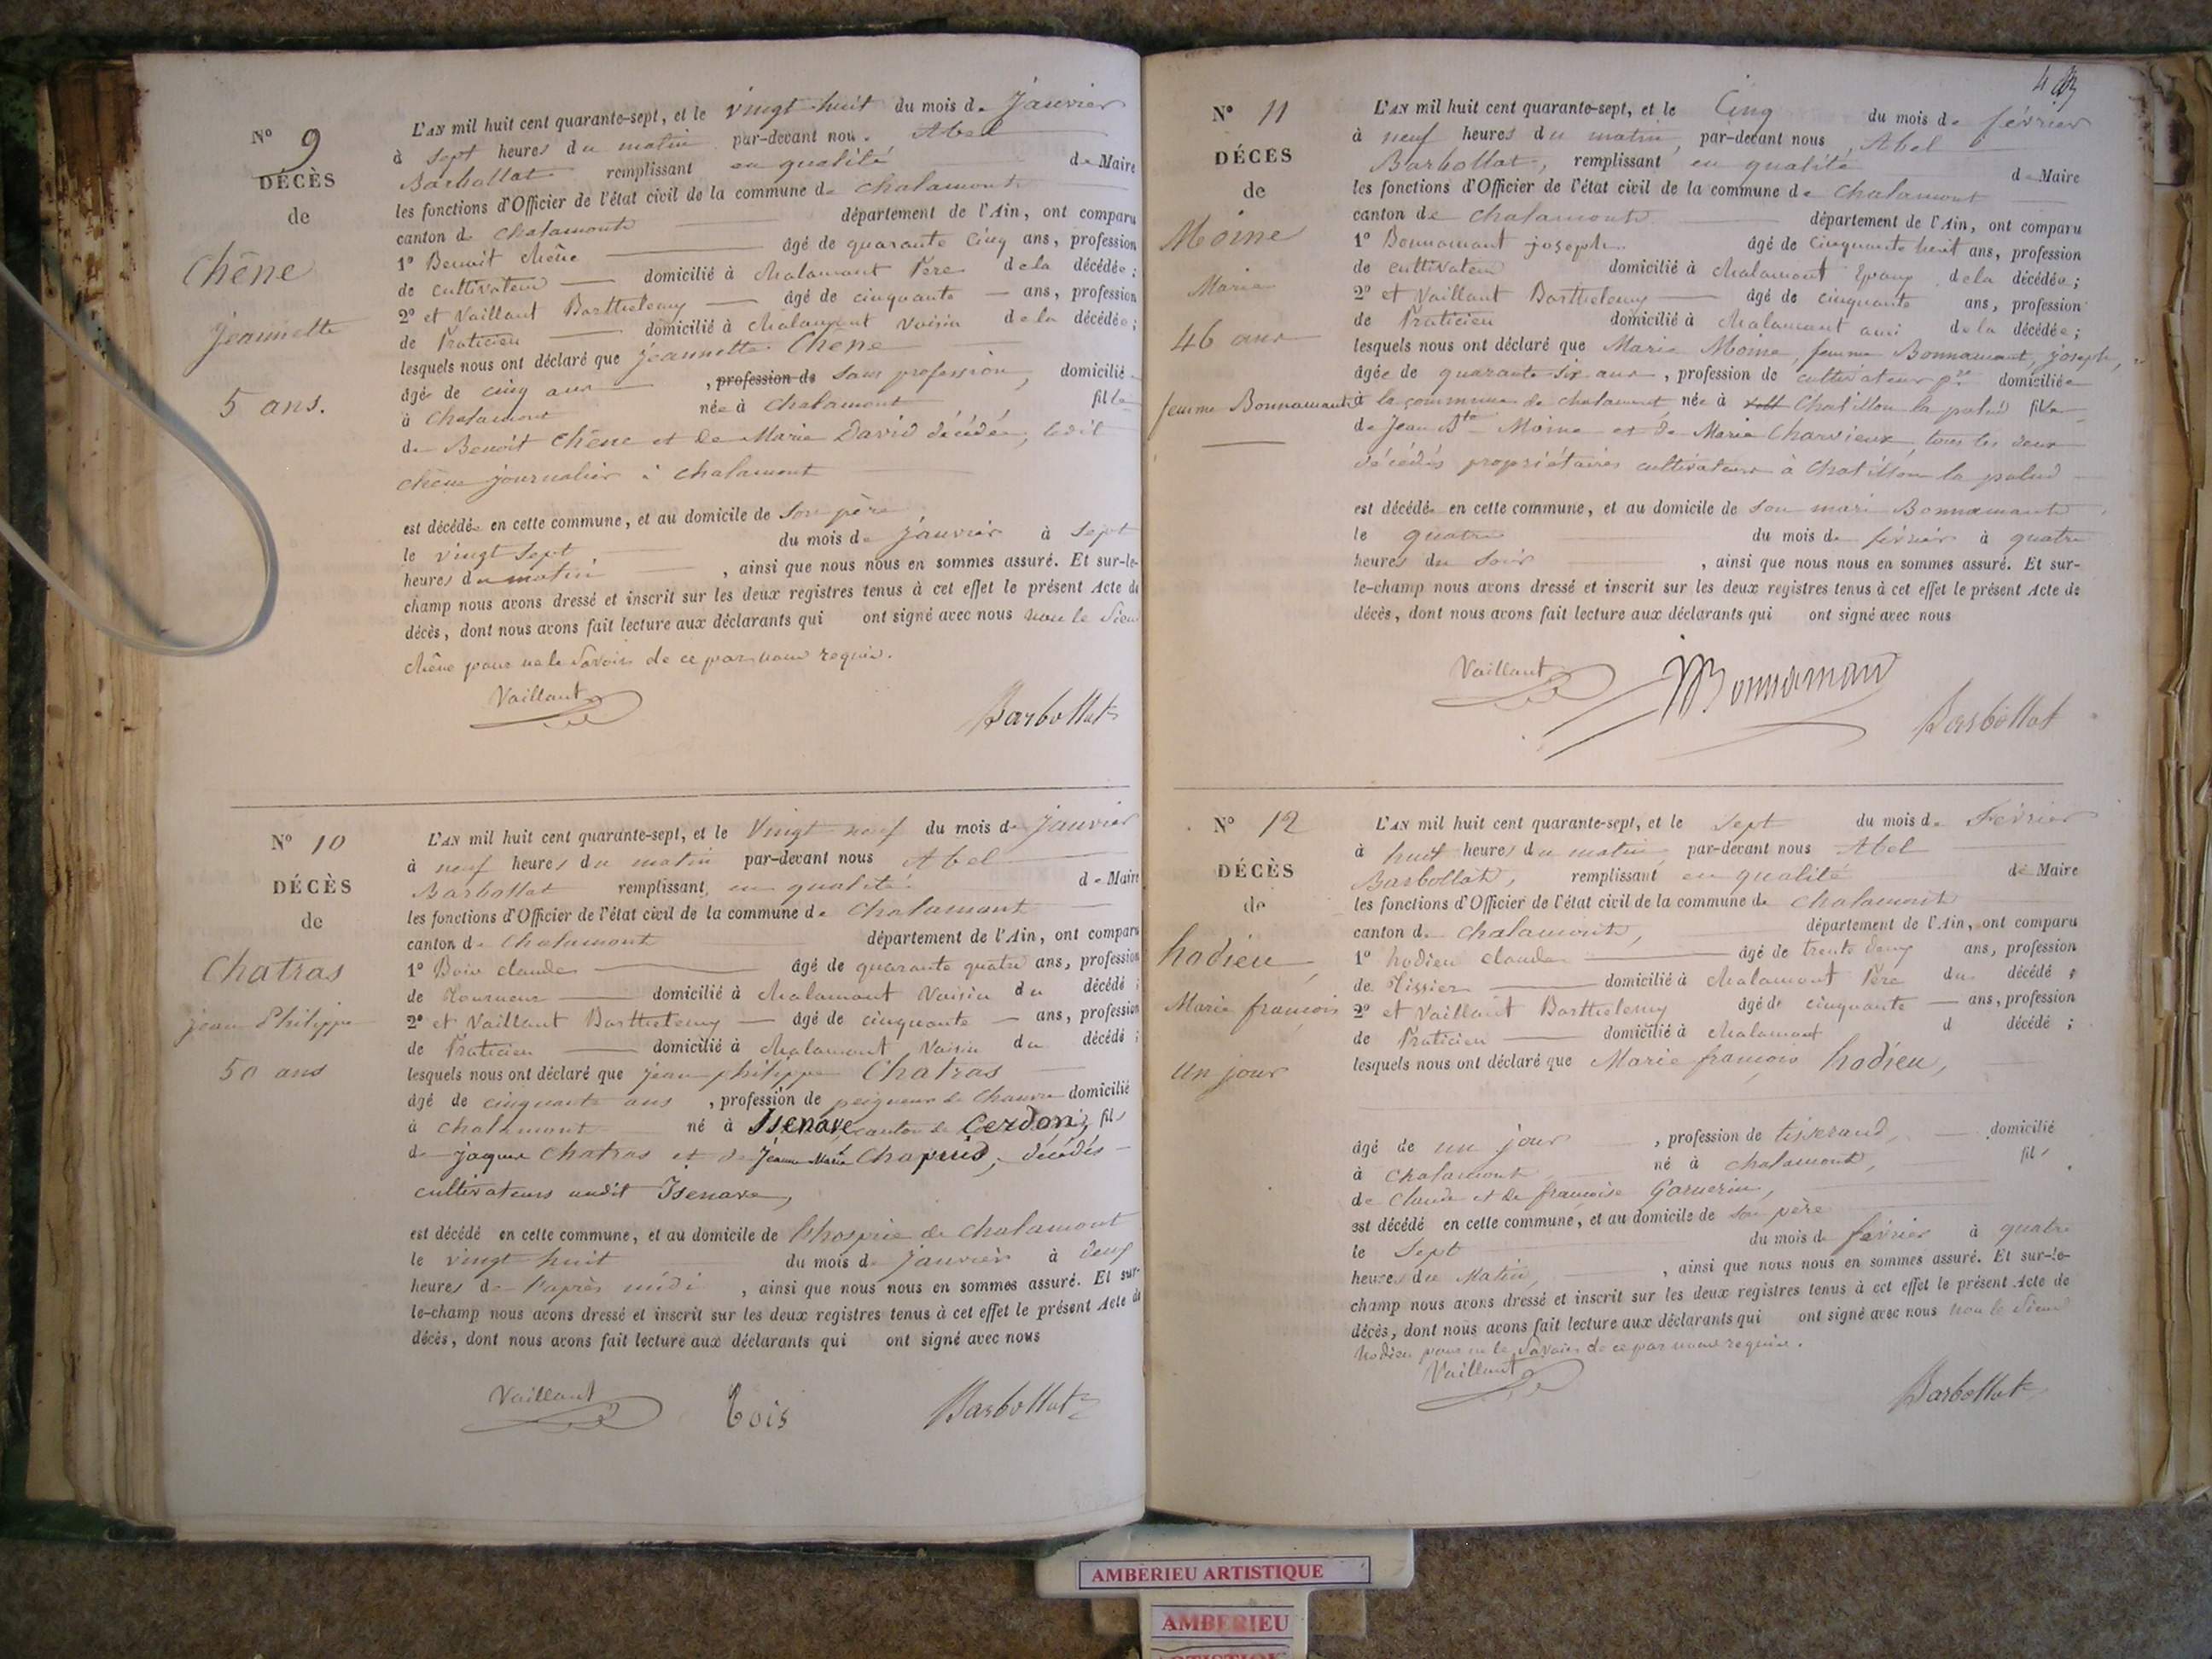 N° 9
DÉCÈS
de
Chêne
Jeannette
5 ans.
L'AN mil huit cent quarante-sept, et le vingt huit du mois de Janvier
à sept heures du matin par-devant nous Abel
Barbollat remplissant en qualité de Maire
les fonctions d'Officier de l'état civil de la commune de chalamont
canton de chalamont département de l'Ain, ont comparu
1° Benoit chêne âgé de quarante cinq ans, profession
de cultivateur domicilié à chalamont Père de la décédée;
2° et Vaillant Barthelemy âgé de cinquante ans, profession
de Praticien domicilié à chalamont voisin de la décédée;
lesquels nous ont déclaré que jeannette Chêne
âgée de cinq ans, profession de sans profession, domiciliée
à Chalamont née à chalamont fille
de Benoit Chêne et de Marie David décédée, ledit
chêne journalier à chalamont
est décédée en cette commune, et au domicile de son père
le vingt sept du mois de janvier à sept
heures du matin, ainsi que nous nous en sommes assuré. Et sur-le-
champ nous avons dressé et inscrit sur les deux registres tenus à cet effet le présent Acte de
décès, dont nous avons fait lecture aux déclarants qui ont signé avec nous non le Sieur
chêne pour ne le savoir de ce par nous requis.
Vaillant
Barbollat
N° 10
DÉCÈS
de
Chatras
jean Philippe
50 ans
L'AN mil huit cent quarante-sept, et le Vingt neuf du mois de Janvier
à neuf heures du matin par-devant nous Abel
Barbollat remplissant en qualité de Maire
les fonctions d'Officier de l'état civil de la commune de Chalamont
canton de Chalamont département de l'Ain, ont comparu
1° Bois claude âgé de quarante quatre ans, profession
de Tourneur domicilié à chalamont Voisin du décédé;
2° et Vaillant Barthelemy âgé de cinquante ans, profession
de Praticien domicilié à chalamont Voisin du décédé;
lesquels nous ont déclaré que jean philippe Chatras
âgé de cinquante ans, profession de peigneur de Chanvre domicilié
à chalamont né à Isenave, canton de Cerdon, fils
de jaques Chatras et de Jeanne Marie Chapuis, décédés
cultivateurs audit Isenave,
est décédé en cette commune, et au domicile de l'hospice de Chalamont
le vingt huit du mois de janvier à deux
heures de l'après midi, ainsi que nous nous en sommes assuré. Et sur-
le-champ nous avons dressé et inscrit sur les deux registres tenus à cet effet le présent Acte de
décès, dont nous avons fait lecture aux déclarants qui ont signé avec nous
Vaillant Bois Barbollat
N° 11
DÉCÈS
de
Moine
Marie
46 ans
femme Bonnamant
L'AN mil huit cent quarante-sept, et le Cinq du mois de février
à neuf heures du matin, par-devant nous, Abel
Barbollat, remplissant en qualité de Maire
les fonctions d'Officier de l'état civil de la commune de Chalamont
canton de chalamont département de l'Ain, ont comparu
1° Bonnamant joseph âgé de cinquante huit ans, profession
de cultivateur domicilié à chalamont Epoux de la décédée;
2° et Vaillant Barthelemy âgé de cinquante ans, profession
de Praticien domicilié à chalamont ami de la décédée;
lesquels nous ont déclaré que Marie Moine, femme Bonnamant, joseph,
âgée de quarante six ans, profession de cultivateur pre domiciliée
à la commune de chalamont, née à Chatillon la palud fille
de Jean Bte Moine et de Marie Charvieux, tous les deux
décédés propriétaires cultivateurs à Chatillon la palud
est décédée en cette commune, et au domicile de son mari Bonnamant
le quatre du mois de février à quatre
heures du soir, ainsi que nous nous en sommes assuré. Et sur-
le-champ nous avons dressé et inscrit sur les deux registres tenus à cet effet le présent Acte de
décès, dont nous avons fait lecture aux déclarants qui ont signé avec nous
Vaillant Bonnamant
Barbollat
N° 12
DÉCÈS
de
hodieu
Marie françois
Un jour
L'AN mil huit cent quarante-sept, et le sept du mois de Février
à huit heures du matin, par-devant nous Abel
Barbollat, remplissant en qualité de Maire
les fonctions d'Officier de l'état civil de la commune de chalamont
canton de chalamont, département de l'Ain, ont comparu
1° hodieu claude âgé de trente deux ans, profession
de Tissier domicilié à chalamont Père du décédé;
2° et Vaillant Barthelemy âgé de cinquante ans, profession
de Praticien domicilié à chalamont d décédé;
lesquels nous ont déclaré que Marie françois hodieu,
âgé de un jour, profession de tisserand, domicilié
à Chalamont né à chalamont, fils
de Claude et de françoise Garnerin,
est décédé en cette commune, et au domicile de son père
le Sept du mois de février à quatre
heures du Matin, ainsi que nous nous en sommes assuré. Et sur-le-
champ nous avons dressé et inscrit sur les deux registres tenus à cet effet le présent Acte de
décès, dont nous avons fait lecture aux déclarants qui ont signé avec nous non le Sieur
hodieu pour ne le savoir de ce par nous requis.
Vaillant
Barbollat
AMBERIEU ARTISTIQUE
AMBERIEU
ARTISTIQUE